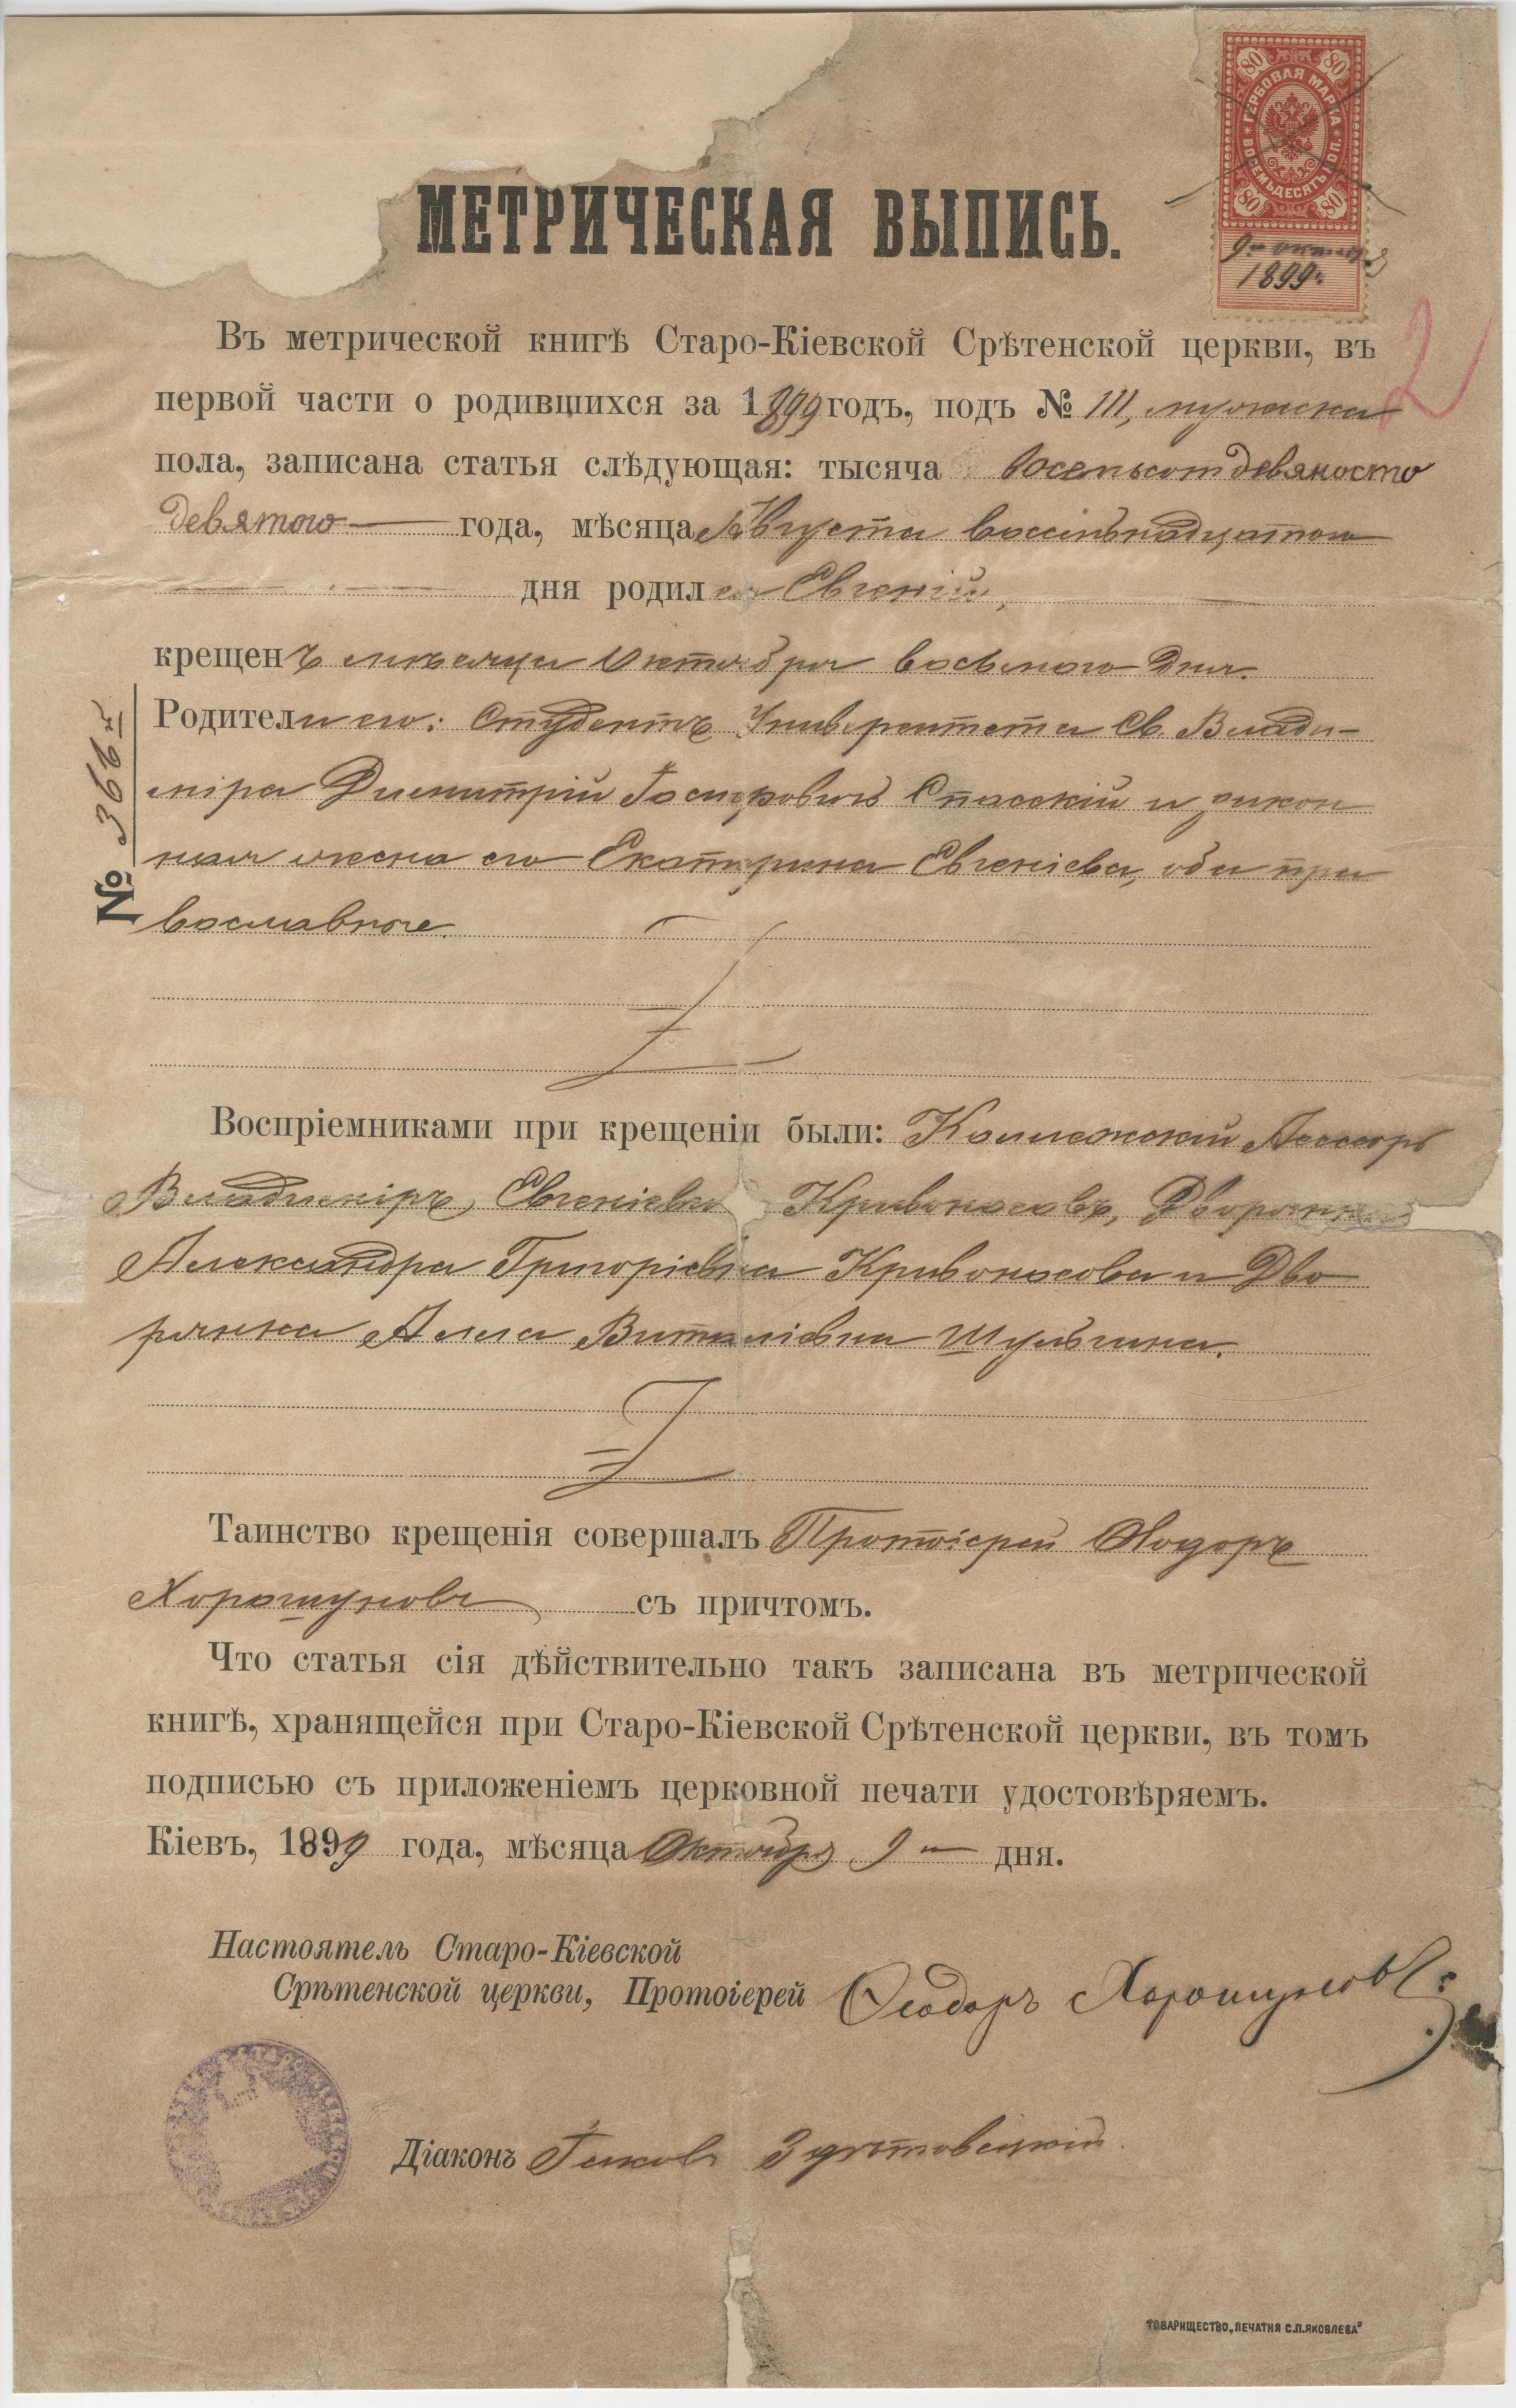 80 80
ГЕРБОВАЯ МАРКА
ВОСЕМЬДЕСЯТЪ КОП.
80 80
9го октяб.
1899г.
МЕТРИЧЕСКАЯ ВЫПИСЬ.
2
Въ метрической книгѣ Старо-Кіевской Срѣтенской церкви, въ
первой части о родившихся за 1899 годъ, подъ № 111, мужска
пола, записана статья слѣдующая: тысяча восемьсот девяносто
девятого года, мѣсяца Августа восемьнадцатого
дня родился Евгеній,
крещенъ мѣсяца Октября восьмого дня.
Родители его: Студентъ Университета Св. Влади-
міра Димитрій Спасскій и закон
ная жена его Екатерина Евгеніева, оба пра
вославные.
№ 366й
Воспріемниками при крещеніи были: Коллежскій Ассесоръ
Владиміръ Евгеніевъ Кривоносовъ, Дворянка
Александра Григоріевна Кривоносова и Дво
рянка Алла Виталіевна Шульгина.
Таинство крещенія совершалъ Протоіерей Ѳеодоръ
Хорошуновъ съ причтомъ.
Что статья сія дѣйствительно такъ записана въ метрической
книгѣ, хранящейся при Старо-Кіевской Срѣтенской церкви, въ томъ
подписью съ приложеніемъ церковной печати удостовѣряемъ.
Кіевъ, 1899 года, мѣсяца Октября 9го дня.
Настоятель Старо-Кіевской
Срѣтенской церкви, Протоіерей Ѳеодоръ Хорошуновъ
Діаконъ Іаковъ
ТОВАРИЩЕСТВО „ПЕЧАТНЯ С.П.ЯКОВЛЕВА"